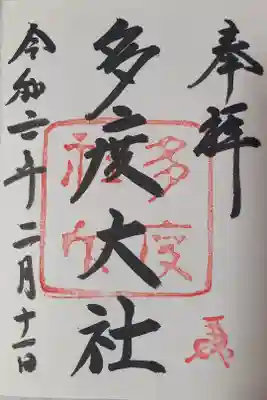 奉拝
多度大社
令和六年二月十一日
多度